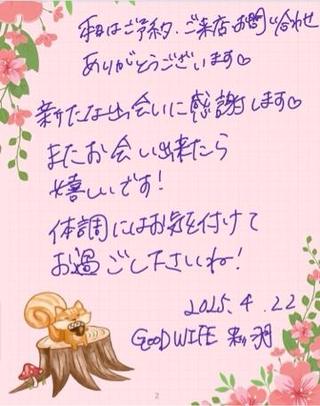 ご予約、ご来店、お問い合わせ
ありがとうございます♡
新たな出会いに感謝します♡
またお会い出来たら
嬉しいです!
体調にはお気を付けて
お過ごし下さいね!
2025.4.22
GOODWIFE
2